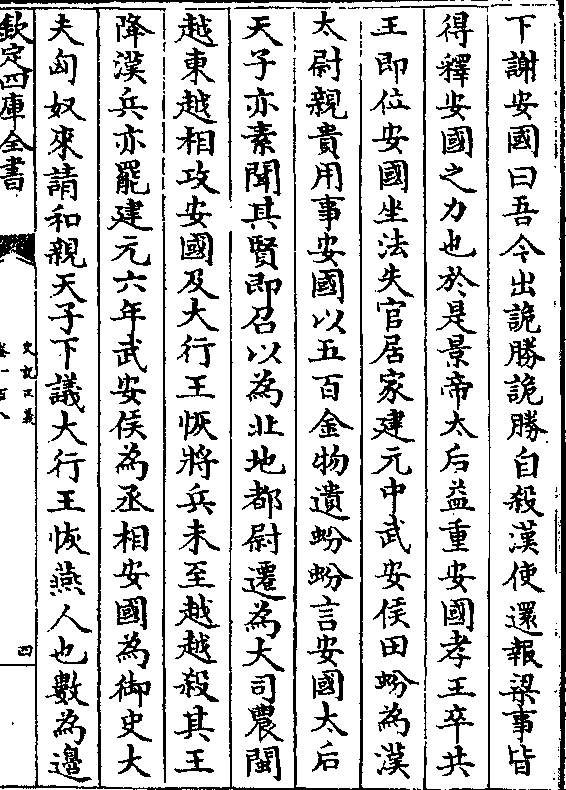 下謝安國曰吾今出詭勝詭勝自殺漢使還報梁事皆
得釋安國之力也於是景帝太后益重安國孝王卒共
王即位安國坐法失官居家建元中武安侯田蚡為漢
太尉親貴用事安國以五百金物遺蚡蚡言安國太后
天子亦素聞其賢即召以為北地都尉遷為大司農閩
越東越相攻安國及大行王恢將兵未至越越殺其王
降漢兵亦罷建元六年武安侯為丞相安國為御史大
夫匈奴來請和親天子下議大行王恢燕人也數為邊
欽定四庫全書
史記正義
卷一百八
四